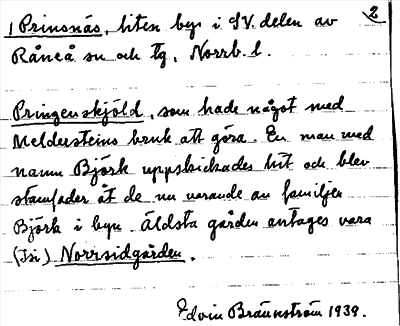 1 Prinsnäs, liten by i SV. delen av 2
Råneå sn och tg, Norrb. l.
Pringenskjöld, som hade något med
Meldersteins bruk att göra. En man med
namn Björk uppskickades hit och blev
stamfader åt de nu varande av familjen
Björk i byn. Äldsta gården antages vara
(Isi) Norrsidgården.
Edvin Brännström 1939.